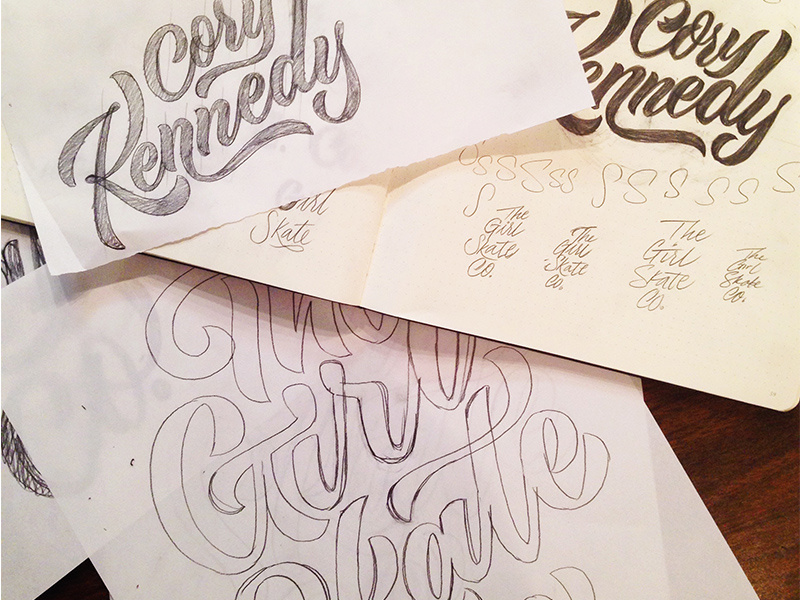 Cory
Kennedy
Cory
Kennedy
Girl
Skate
S S S S S S S S S S S S
S
The
Girl
Skate
Co.
The
Girl
Skate
Co.
The
Girl
Skate
Co.
The
Girl
Skate
Co.
Girl
Skate